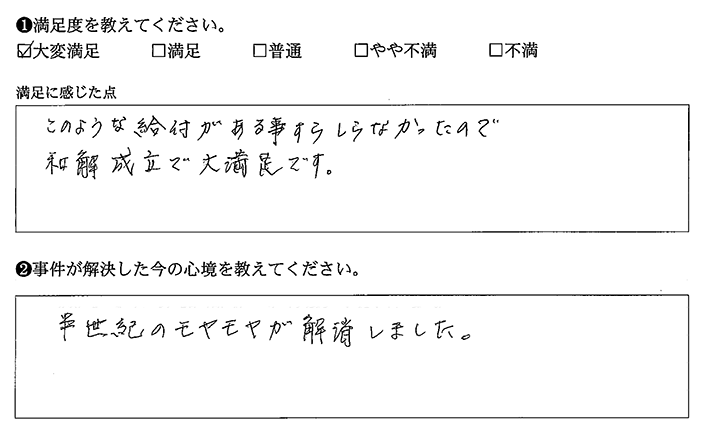 ❶満足度を教えてください。
☑大変満足 □満足 □普通 □やや不満 □不満
満足に感じた点
このような給付がある事すらしらなかったので
和解成立で大満足です。
❷事件が解決した今の心境を教えてください。
半世紀のモヤモヤが解消しました。